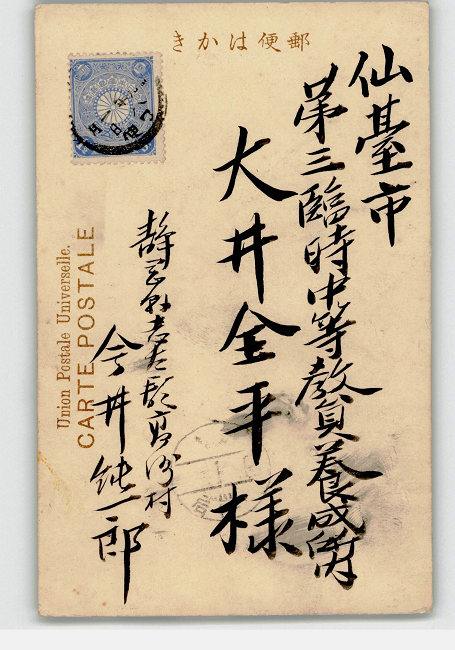 郵便はかき
仙臺市
第三臨時中等教員養成所
大井金平様
静岡縣志太郡高洲村
今井純一郎
Union Postale Universelle.
CARTE POSTALE